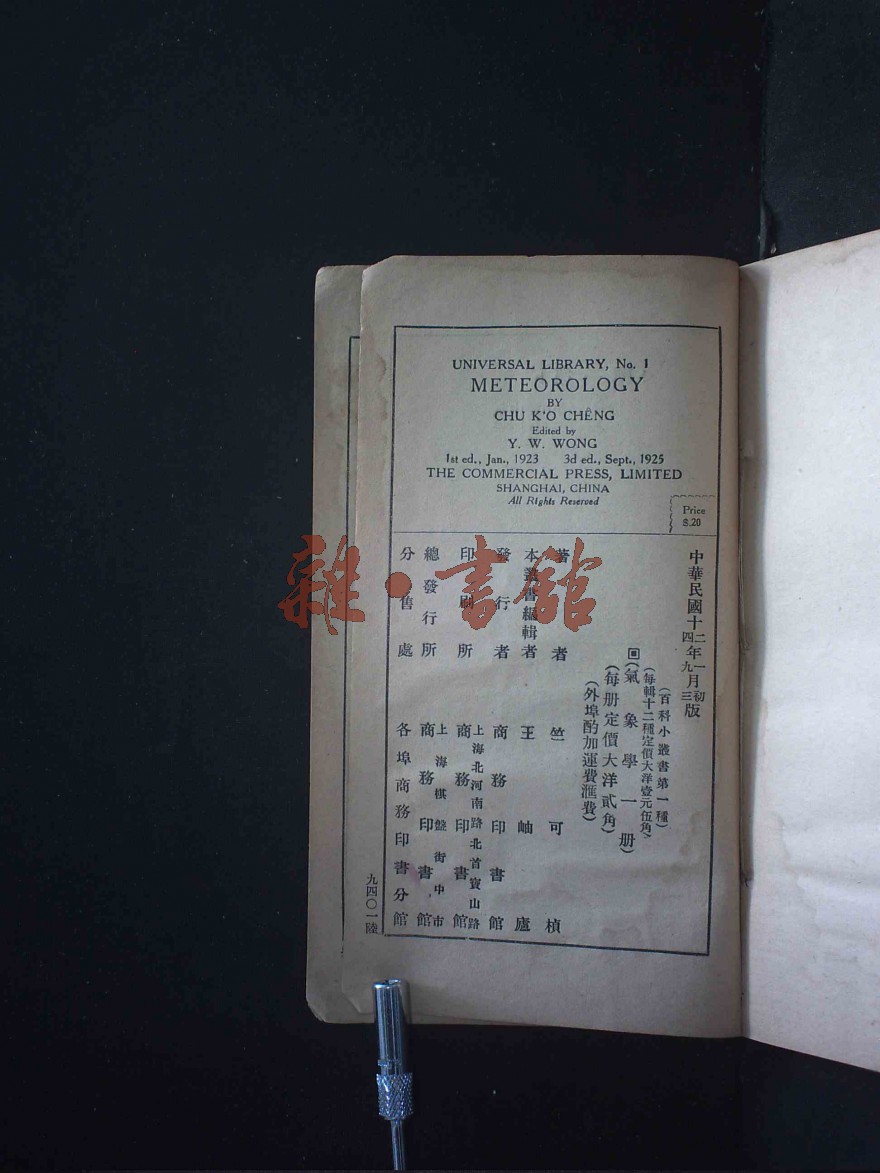 UNIVERSAL LIBRARY, No. 1
METEOROLOGY
BY
CHU K'O CHÊNG
Edited by
Y. W. WONG
1st ed., Jan., 1923 3d ed., Sept., 1925
THE COMMERCIAL PRESS, LIMITED
SHANGHAI, CHINA
All Rights Reserved
Price
$.20
中華民國十二年一月初版
四 九 三
(百科小叢書第一種)
(每輯十二種定價大洋壹元伍角)
回(氣象學一册)
(每册定價大洋貳角)
(外埠酌加運費滙費)
著者 竺可楨
本叢書編輯者 王岫廬
發行者 商務印書館
印刷所 上海北河南路北首寶山路 商務印書館
總發行所 上海棋盤街中市 商務印書館
分售處 各埠商務印書分館
九四〇一陸
雜·書館